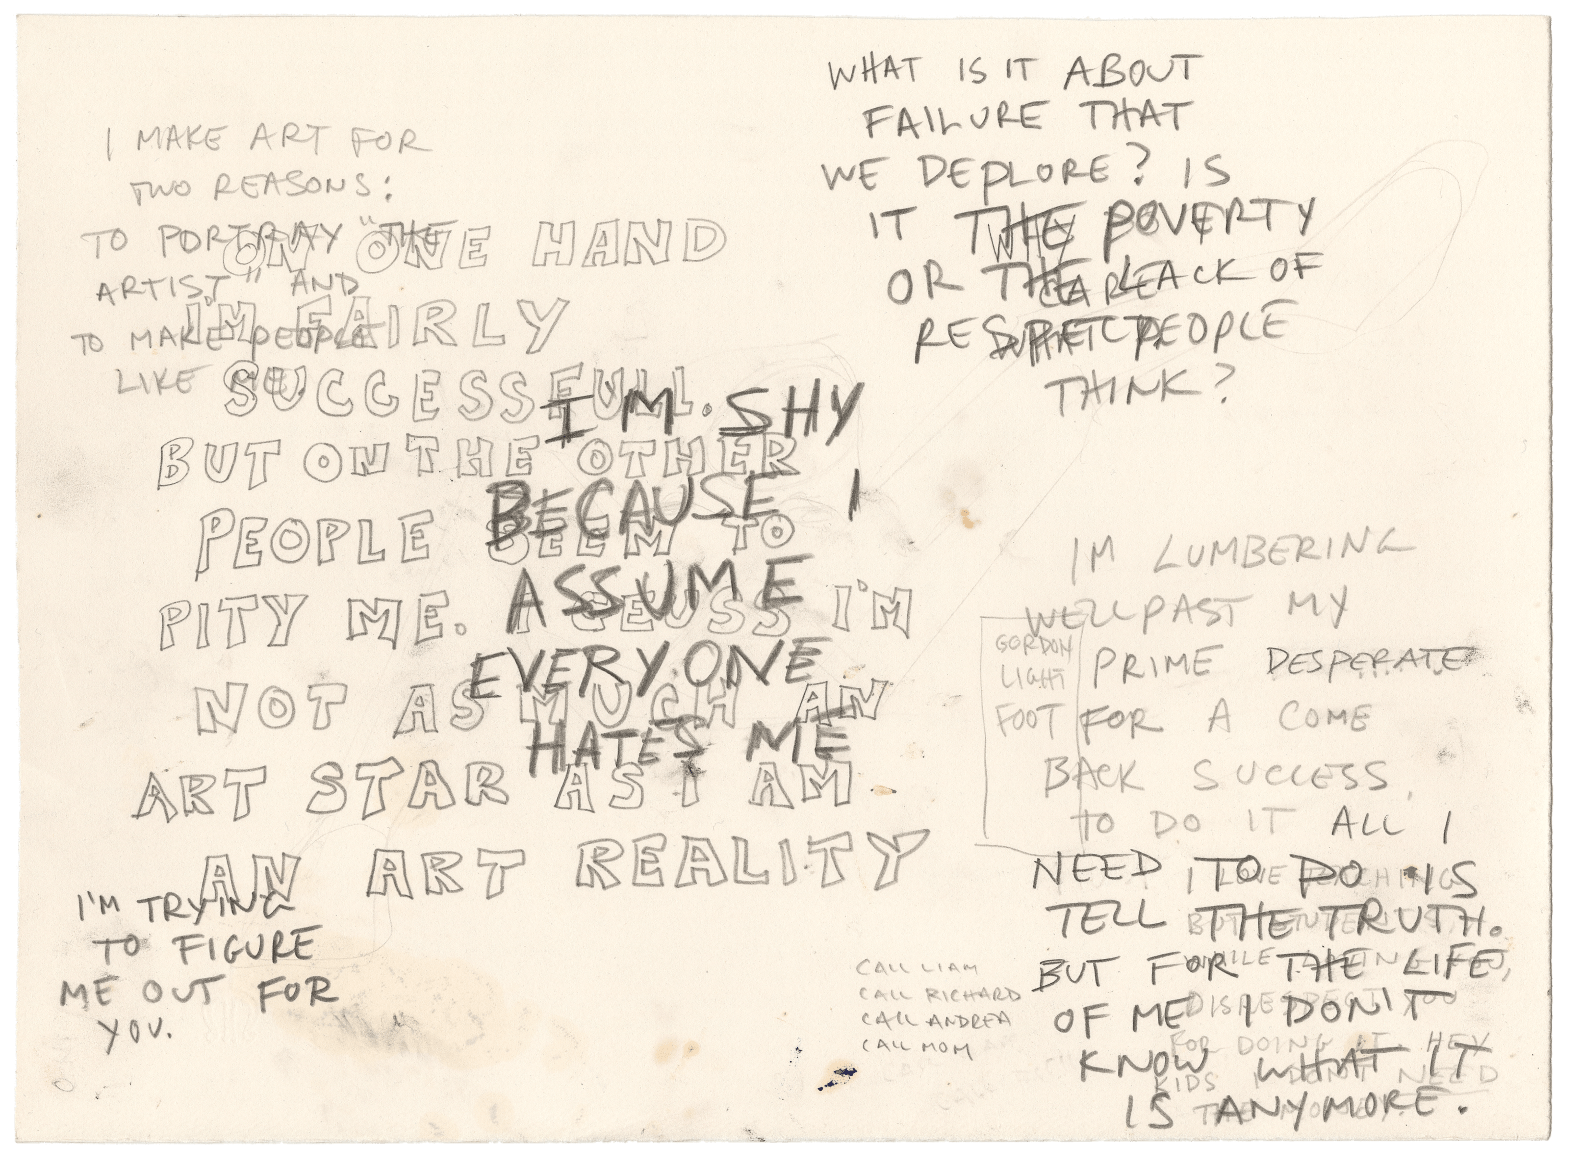 I MAKE ART FOR
TWO REASONS:
TO PORTRAY "THE
ARTIST" AND
TO MAKE PEOPLE
LIKE ME.
ON ONE HAND
I'M FAIRLY
SUCCESSFULL.
BUT ON THE OTHER
PEOPLE SEEM TO
PITY ME. I GEUSS I'M
NOT AS MUCH AN
ART STAR AS I AM
AN ART REALITY
I'M SHY
BECAUSE I
ASSUME
EVERYONE
HATES ME
I'M TRYING
TO FIGURE
ME OUT FOR
YOU.
WHAT IS IT ABOUT
FAILURE THAT
WE DEPLORE? IS
IT THE POVERTY
OR THE LACK OF
RESPECT?
WHY
CARE
WHAT PEOPLE
THINK?
IM LUMBERING
WELL PAST MY
PRIME DESPERATE
FOR A COME
BACK SUCCESS.
TO DO IT ALL I
NEED TO DO IS
TELL THE TRUTH.
BUT FOR THE LIFE
OF ME I DON'T
KNOW WHAT IT
IS ANYMORE.
GORDON
LIGHT
FOOT
I LOVE TEACHING
BUT STUDENTS,
WHILE LOVING YOU,
DISRESPECT YOU
FOR DOING IT. HEY
KIDS I DON'T NEED
THE MONEY.
CALL LIAM
CALL RICHARD
CALL ANDREA
CALL MOM